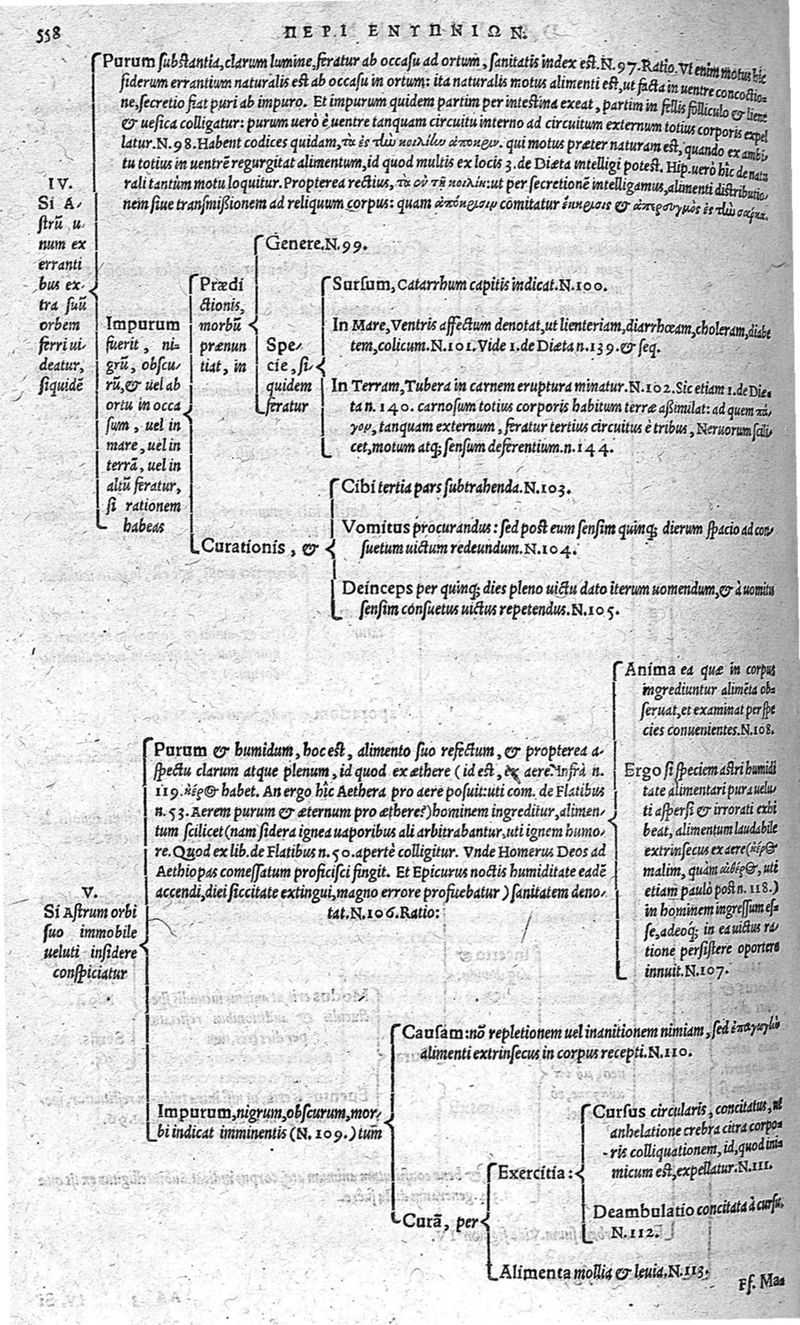 558
ΠΕΡΙ ΕΝΥΠΝΙΩΝ.
IV.
Si A-
strũ u-
num ex
erranti
bus ex-
tra suũ
orbem
ferri ui-
deatur,
siquidẽ
Purum substantia, clarum lumine, feratur ab occasu ad ortum, sanitatis index est. N. 97. Ratio. Vt enim motus hic
siderum errantium naturalis est ab occasu in ortum: ita naturalis motus alimenti est, ut facta in uentre concoctio-
ne, secretio fiat puri ab impuro. Et impurum quidem partim per intestina exeat, partim in fellis folliculo & liene
& uesica colligatur: purum uerò è uentre tanquam circuitu interno ad circuitum externum totius corporis expel
latur. N. 98. Habent codices quidam, τὰ ἐς τὴν κοιλίην ἀποκριν. qui motus præter naturam est, quando ex ambi-
tu totius in uentrẽ regurgitat alimentum, id quod multis ex locis 3. de Diæta intelligi potest. Hip. uerò hic de natu
rali tantùm motu loquitur. Propterea rectius, τὰ ἐν τῇ κοιλίῃ: ut per secretionẽ intelligamus, alimenti distributio-
nem siue transmißionem ad reliquum corpus: quam ἀπόκρισιν comitatur ἔκκρισις & ἀπερευγμὸς ἐς τὴν σάρκα.
Impurum
fuerit, ni-
grũ, obscu-
rũ, & uel ab
ortu in occa
sum, uel in
mare, uel in
terrã, uel in
altũ feratur,
si rationem
habeas
Prædi
ctionis,
morbũ
prænun
tiat, in
Genere. N. 99.
Spe-
cie, si-
quidem
feratur
Sursum, Catarrhum capitis indicat. N. 100.
In Mare, Ventris affectum denotat, ut lienteriam, diarrhœam, choleram, diabe
tem, colicum. N. 101. Vide 1. de Diæta n. 139. & seq.
In Terram, Tubera in carnem eruptura minatur. N. 102. Sic etiam 1. de Diæ-
ta n. 140. carnosum totius corporis habitum terræ aßimilat: ad quem πά-
γον, tanquam externum, feratur tertius circuitus è tribus, Neruorum scili-
cet, motum atq; sensum deferentium. n. 144.
Curationis, &
Cibi tertia pars subtrahenda. N. 103.
Vomitus procurandus: sed post eum sensim quinq; dierum spacio ad con
suetum uictum redeundum. N. 104.
Deinceps per quinq; dies pleno uictu dato iterum uomendum, & à uomitu
sensim consuetus uictus repetendus. N. 105.
V.
Si Astrum orbi
suo immobile
ueluti insidere
conspiciatur
Purum & humidum, hoc est, alimento suo refectum, & propterea a-
spectu clarum atque plenum, id quod ex æthere (id est, ex aere. Infrà n.
119. ἠέρ@ habet. An ergo hîc Aethera pro aere posuit: uti com. de Flatibus
n. 53. Aerem purum & æternum pro æthere?) hominem ingreditur, alimen-
tum scilicet (nam sidera ignea uaporibus ali arbitrabantur, uti ignem humo-
re. Quod ex lib. de Flatibus n. 50. apertè colligitur. Vnde Homerus Deos ad
Aethiopas comessatum proficisci fingit. Et Epicurus noctis humiditate eadẽ
accendi, diei siccitate extingui, magno errore profitebatur) sanitatem deno-
tat. N. 106. Ratio:
Anima ea quæ in corpus
ingrediuntur alimẽta ob-
seruat, et examinat per spe
cies conuenientes. N. 108.
Ergo si speciem astri humidi
tate alimentari pura uelu-
ti aspersi & irrorati exhi
beat, alimentum laudabile
extrinsecus ex aere (ἠέρ@
malim, quàm αἰθέρ@, uti
etiam paulò post n. 118.)
in hominem ingressum es-
se, adeoq; in ea uictus ra-
tione persistere oportere
innuit. N. 107.
Impurum, nigrum, obscurum, mor-
bi indicat imminentis (N. 109.) tum
Causam: nõ repletionem uel inanitionem nimiam, sed ἐπαγωγὴν
alimenti extrinsecus in corpus recepti. N. 110.
Curã, per
Exercitia:
Cursus circularis, concitatus, ut
anhelatione crebra citra corpo-
ris colliquationem, id, quod ini-
micum est, expellatur. N. 111.
Deambulatio concitata à cursu.
N. 112.
Alimenta mollia & leuia. N. 113.
Ff. Ma-